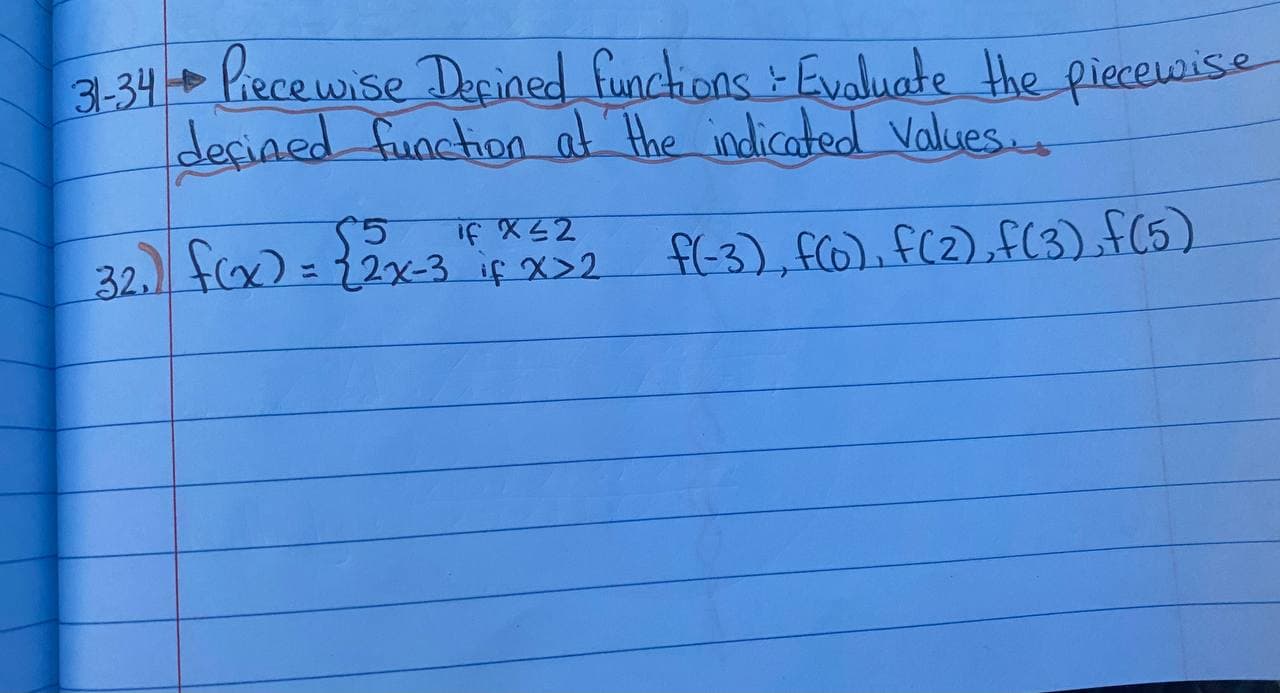 31-34 → Piecewise Defined functions :- Evaluate the piecewise
defined function at the indicated values.
32.) f(x) = { 5 if x ≤ 2
2x-3 if x > 2 f(-3), f(0), f(2), f(3), f(5)